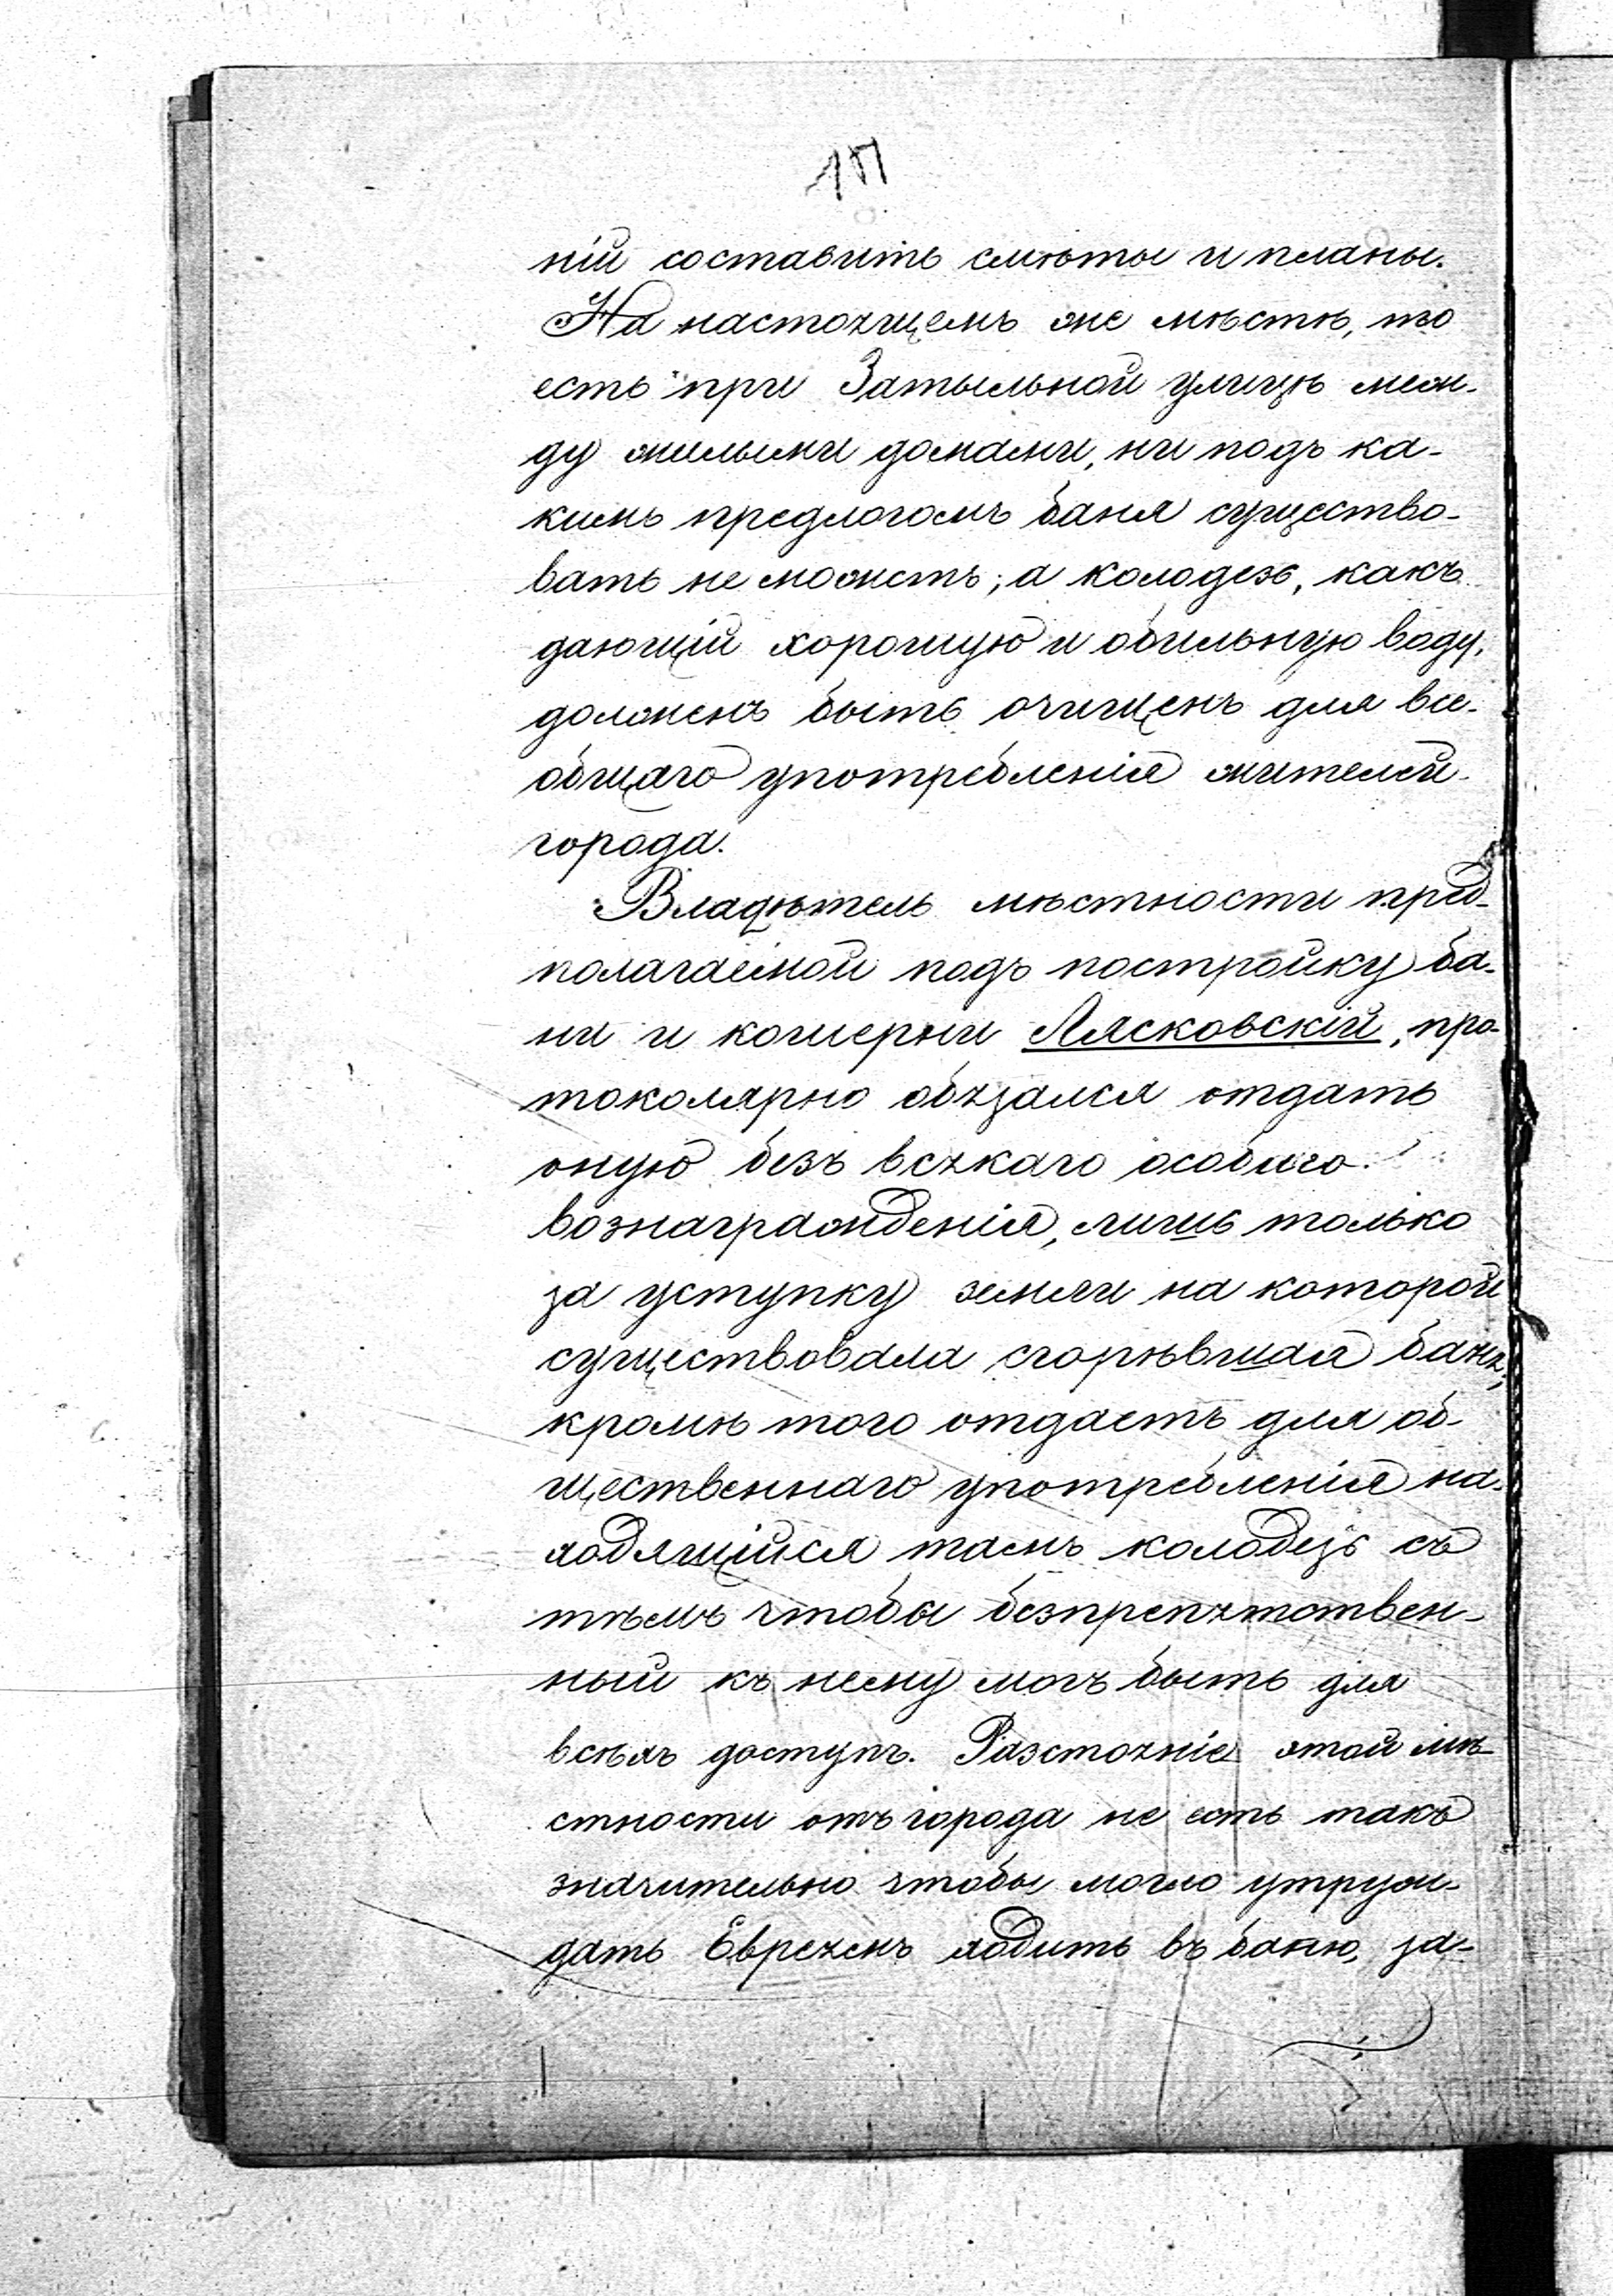 ній составить смѣты и планы.
На настоящемъ же мѣстѣ, то
есть при Затыльной улицѣ меж-
ду жилыми домами, ни подъ ка-
кимъ предлогомъ баня существо-
вать не можетъ; а колодезь, какъ
дающій хорошую и обильную воду,
долженъ быть очищенъ для все-
общаго употребленія жителей
города.
Владѣтель мѣстности пред-
полагаемой подъ постройку ба-
ни и кошерни Лясковскій, про-
токолярно обязался отдать
оную безъ всякаго особаго
вознагражденія, лишь только
за уступку земли на которой
существовала сгорѣвшая баня,
кромѣ того отдастъ для об-
щественнаго употребленія на-
ходящійся тамъ колодезь съ
тѣмъ чтобы безпрепятствен-
ный къ нему могъ быть для
всѣхъ доступъ. Разстояніе этой мѣ-
стности отъ города не есть такъ
значительно чтобы могло утруж-
дать Евреекъ ходить въ баню, за-